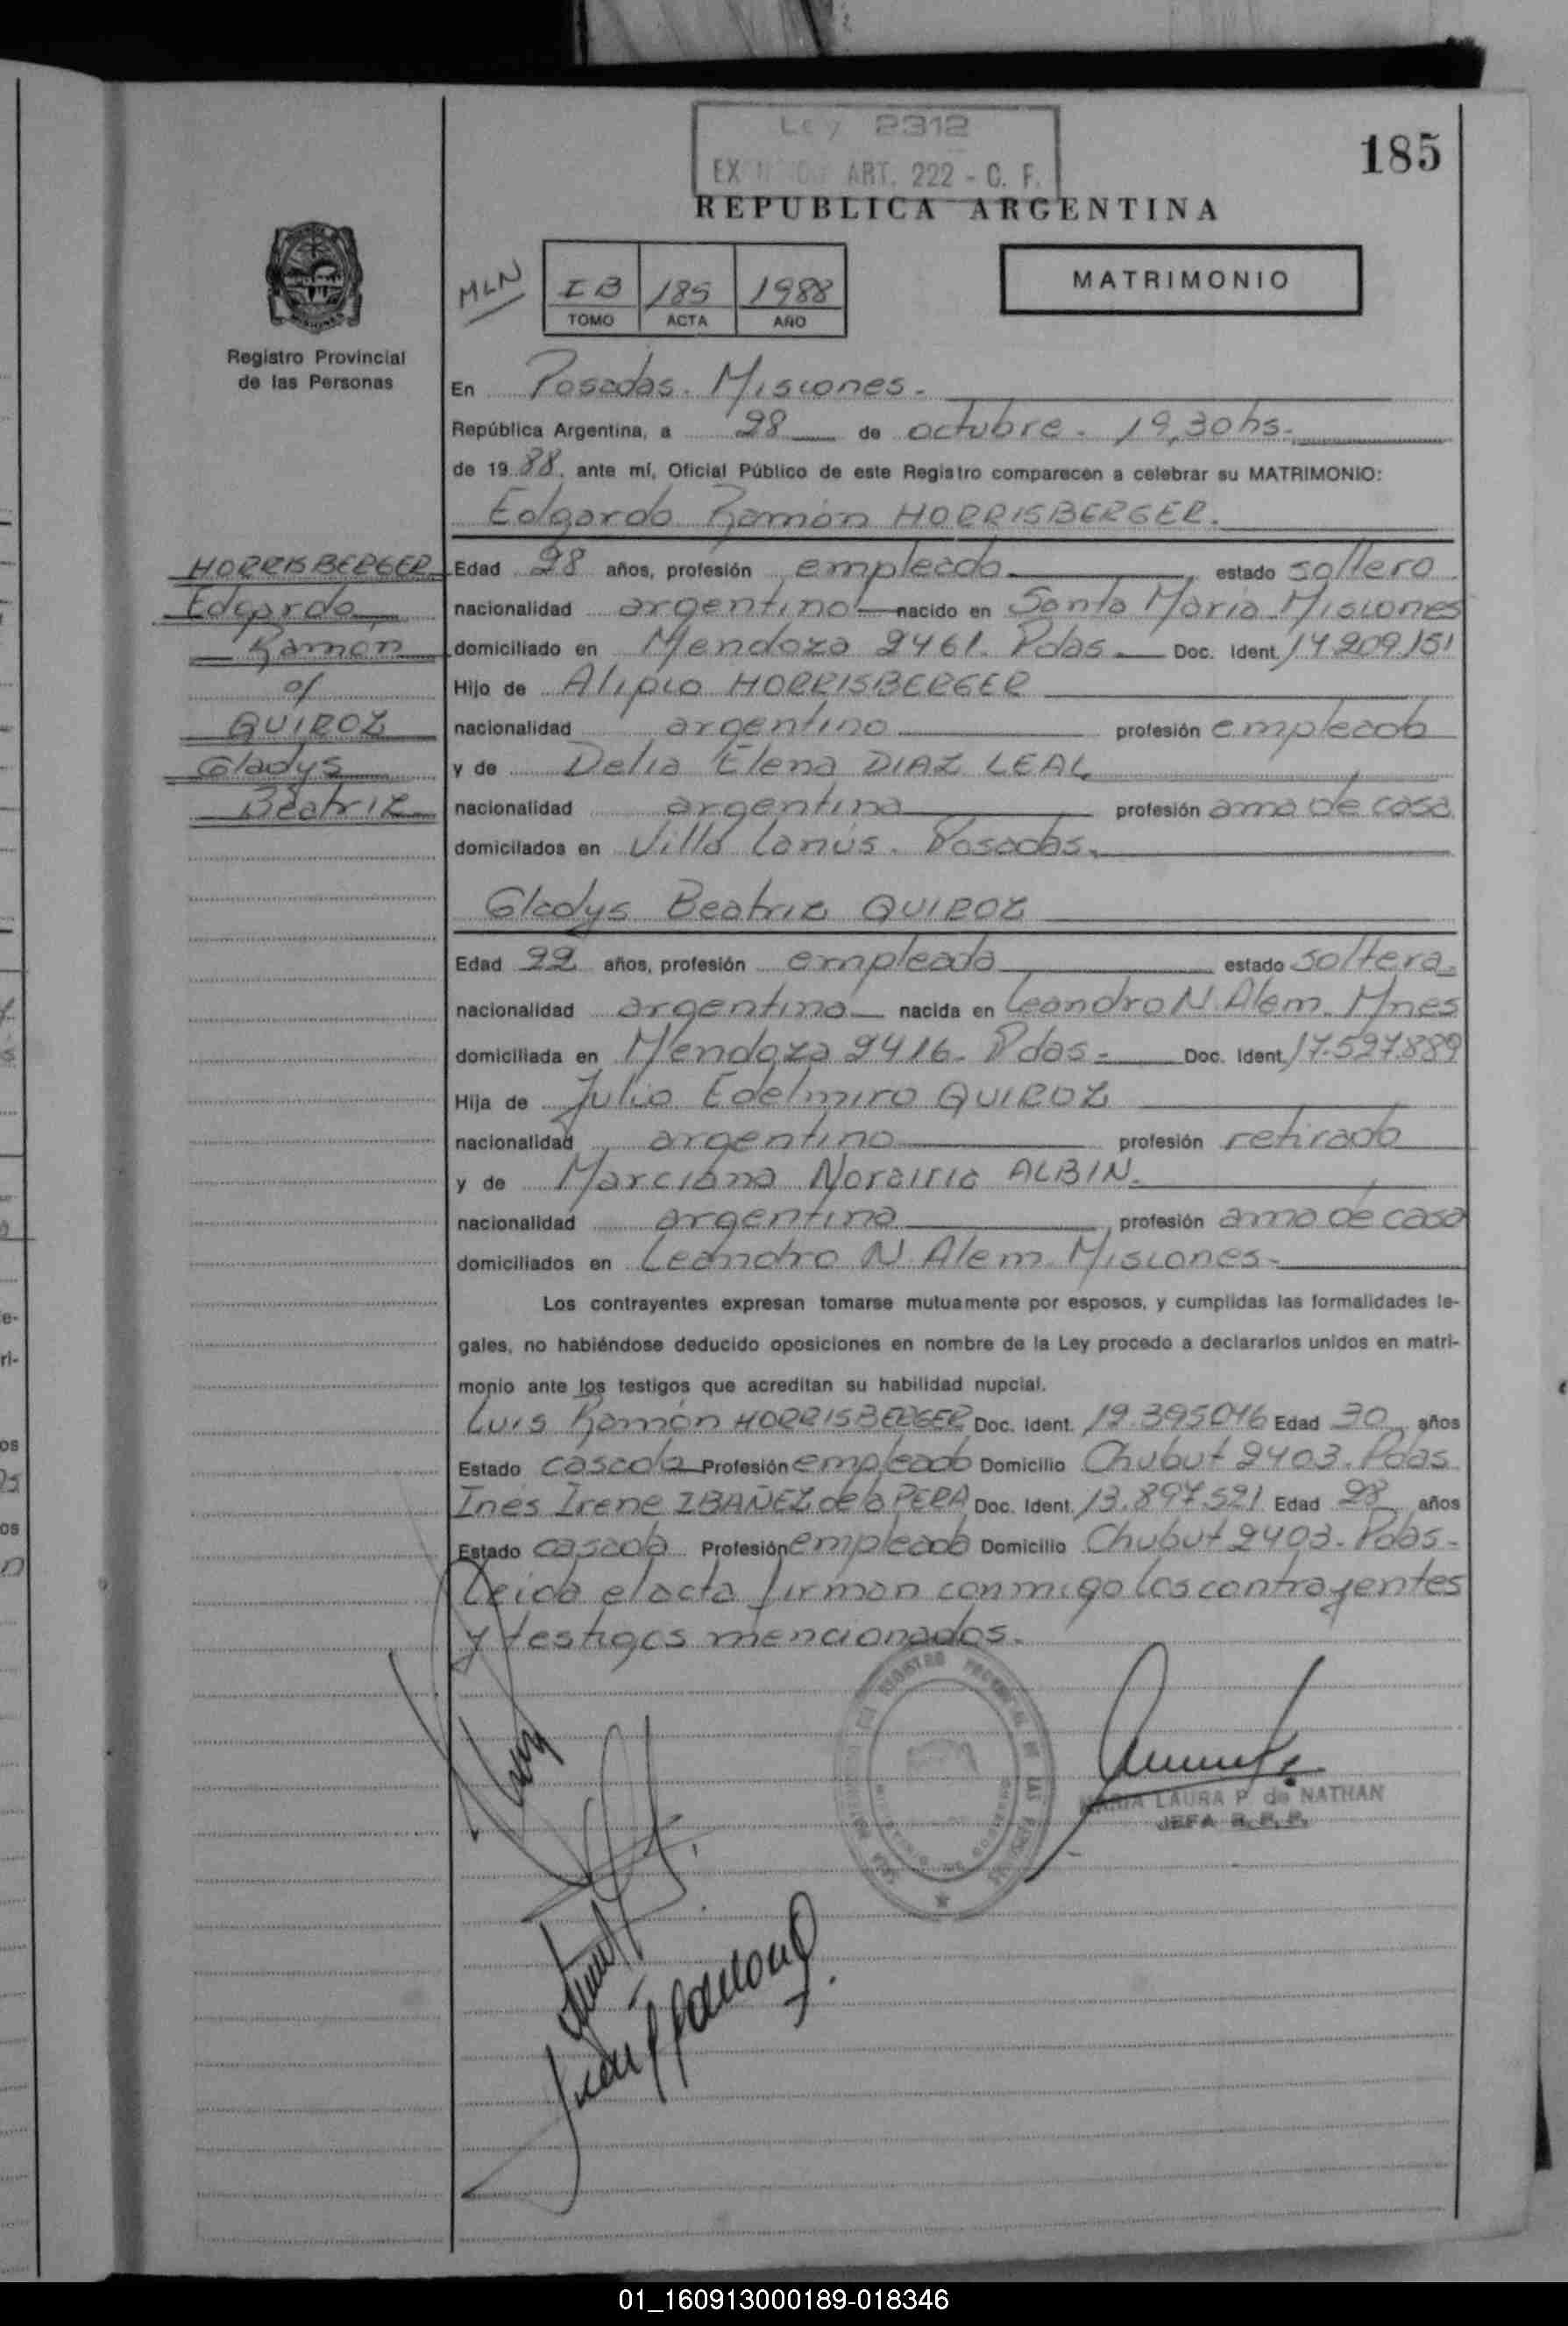 Ley 2312
ART. 222 - C. F.
185
REPUBLICA ARGENTINA
MLN
I B 185 1988
TOMO ACTA AÑO
MATRIMONIO
Registro Provincial
de las Personas
En Posadas. Misiones.
República Argentina, a 28 de octubre. 19,30 hs.
de 19 88, ante mí, Oficial Público de este Registro comparecen a celebrar su MATRIMONIO:
Edgardo Ramón HORRISBERGER.
HORRISBERGER
Edgardo
Ramón
c/
QUIROZ
Gladys
Beatriz
Edad 28 años, profesión empleado estado soltero
nacionalidad argentino nacido en Santa María Misiones
domiciliado en Mendoza 2461. Pdas. Doc. Ident. 14.209.151
Hijo de Alipio HORRISBERGER
nacionalidad argentino profesión empleado
y de Delia Elena DIAZ LEAL
nacionalidad argentina profesión ama de casa
domiciliados en Villa Lanús. Posadas.
Gladys Beatriz QUIROZ
Edad 22 años, profesión empleada estado soltera.
nacionalidad argentina nacida en Leandro N. Alem. Mnes
domiciliada en Mendoza 2416. Pdas. Doc. Ident. 17.527.889
Hija de Julio Edelmiro QUIROZ
nacionalidad argentino profesión retirado
y de Marciana ALBIN.
nacionalidad argentina profesión ama de casa
domiciliados en Leandro N. Alem. Misiones.
Los contrayentes expresan tomarse mutuamente por esposos, y cumplidas las formalidades le-
gales, no habiéndose deducido oposiciones en nombre de la Ley procedo a declararlos unidos en matri-
monio ante los testigos que acreditan su habilidad nupcial.
Luis Ramón HORRISBERGER Doc. Ident. Edad 30 años
Estado casado Profesión empleado Domicilio Chubut 2403. Pdas
Inés Irene IBAÑEZ de la PERA Doc. Ident. 13.897.521 Edad 28 años
Estado casada Profesión empleada Domicilio Chubut 2403. Pdas.
Leida el acta firman conmigo los contrayentes
y testigos mencionados.
MARIA LAURA P. de NATHAN
JEFA R. P. P.
01_160913000189-018346